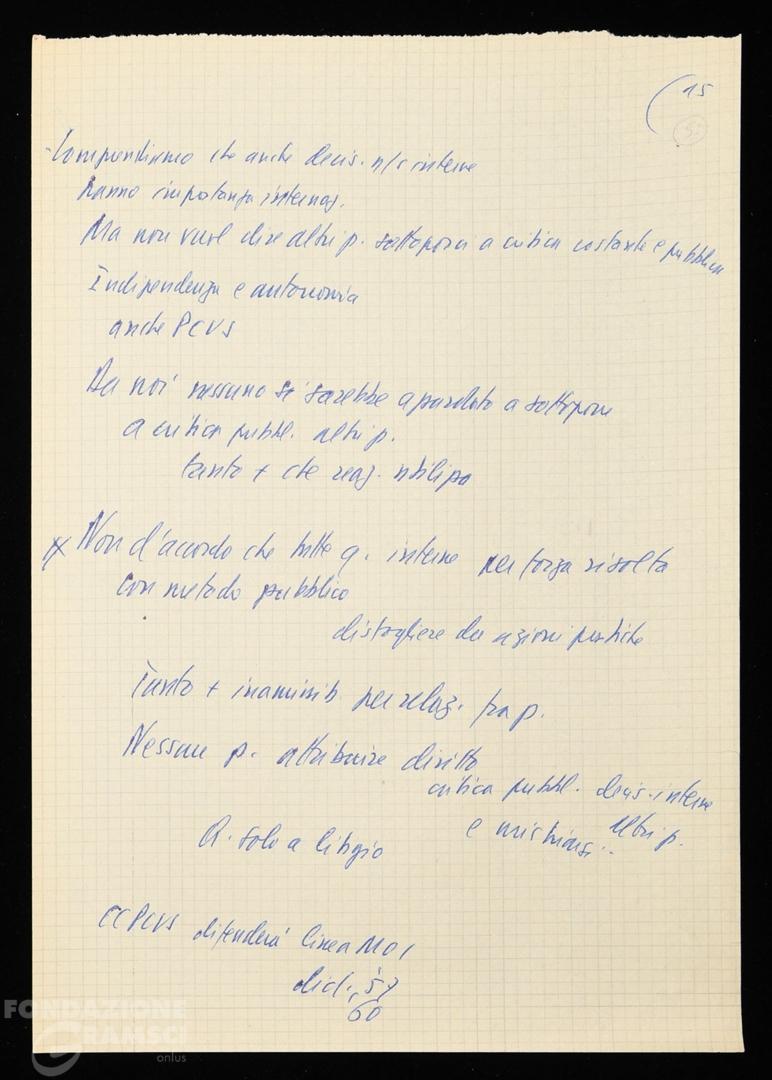 15
- Comprendiamo che anche decis. n/s interne
hanno importanza internaz.
Ma non vuol dire altri p. sottoporci a critica costante e pubblica
Indipendenza e autonomia
anche PCUS
Da noi nessuno si sarebbe apprestato a sottoporre
a critica pubbl. altri p.
tanto + che reaz.
x Non d'accordo che tutte q. interne per forza risolta
con metodo pubblico
distogliere da azioni pratiche
Tanto + inammib. per relaz. tra p.
Nessun p. attribuire diritto
critica pubbl. decis. interne
altri p.
e mischiarsi..
R. solo a litigio
CC PCUS difenderà linea MOI
dich. 57
60
FONDAZIONE
GRAMSCI
onlus